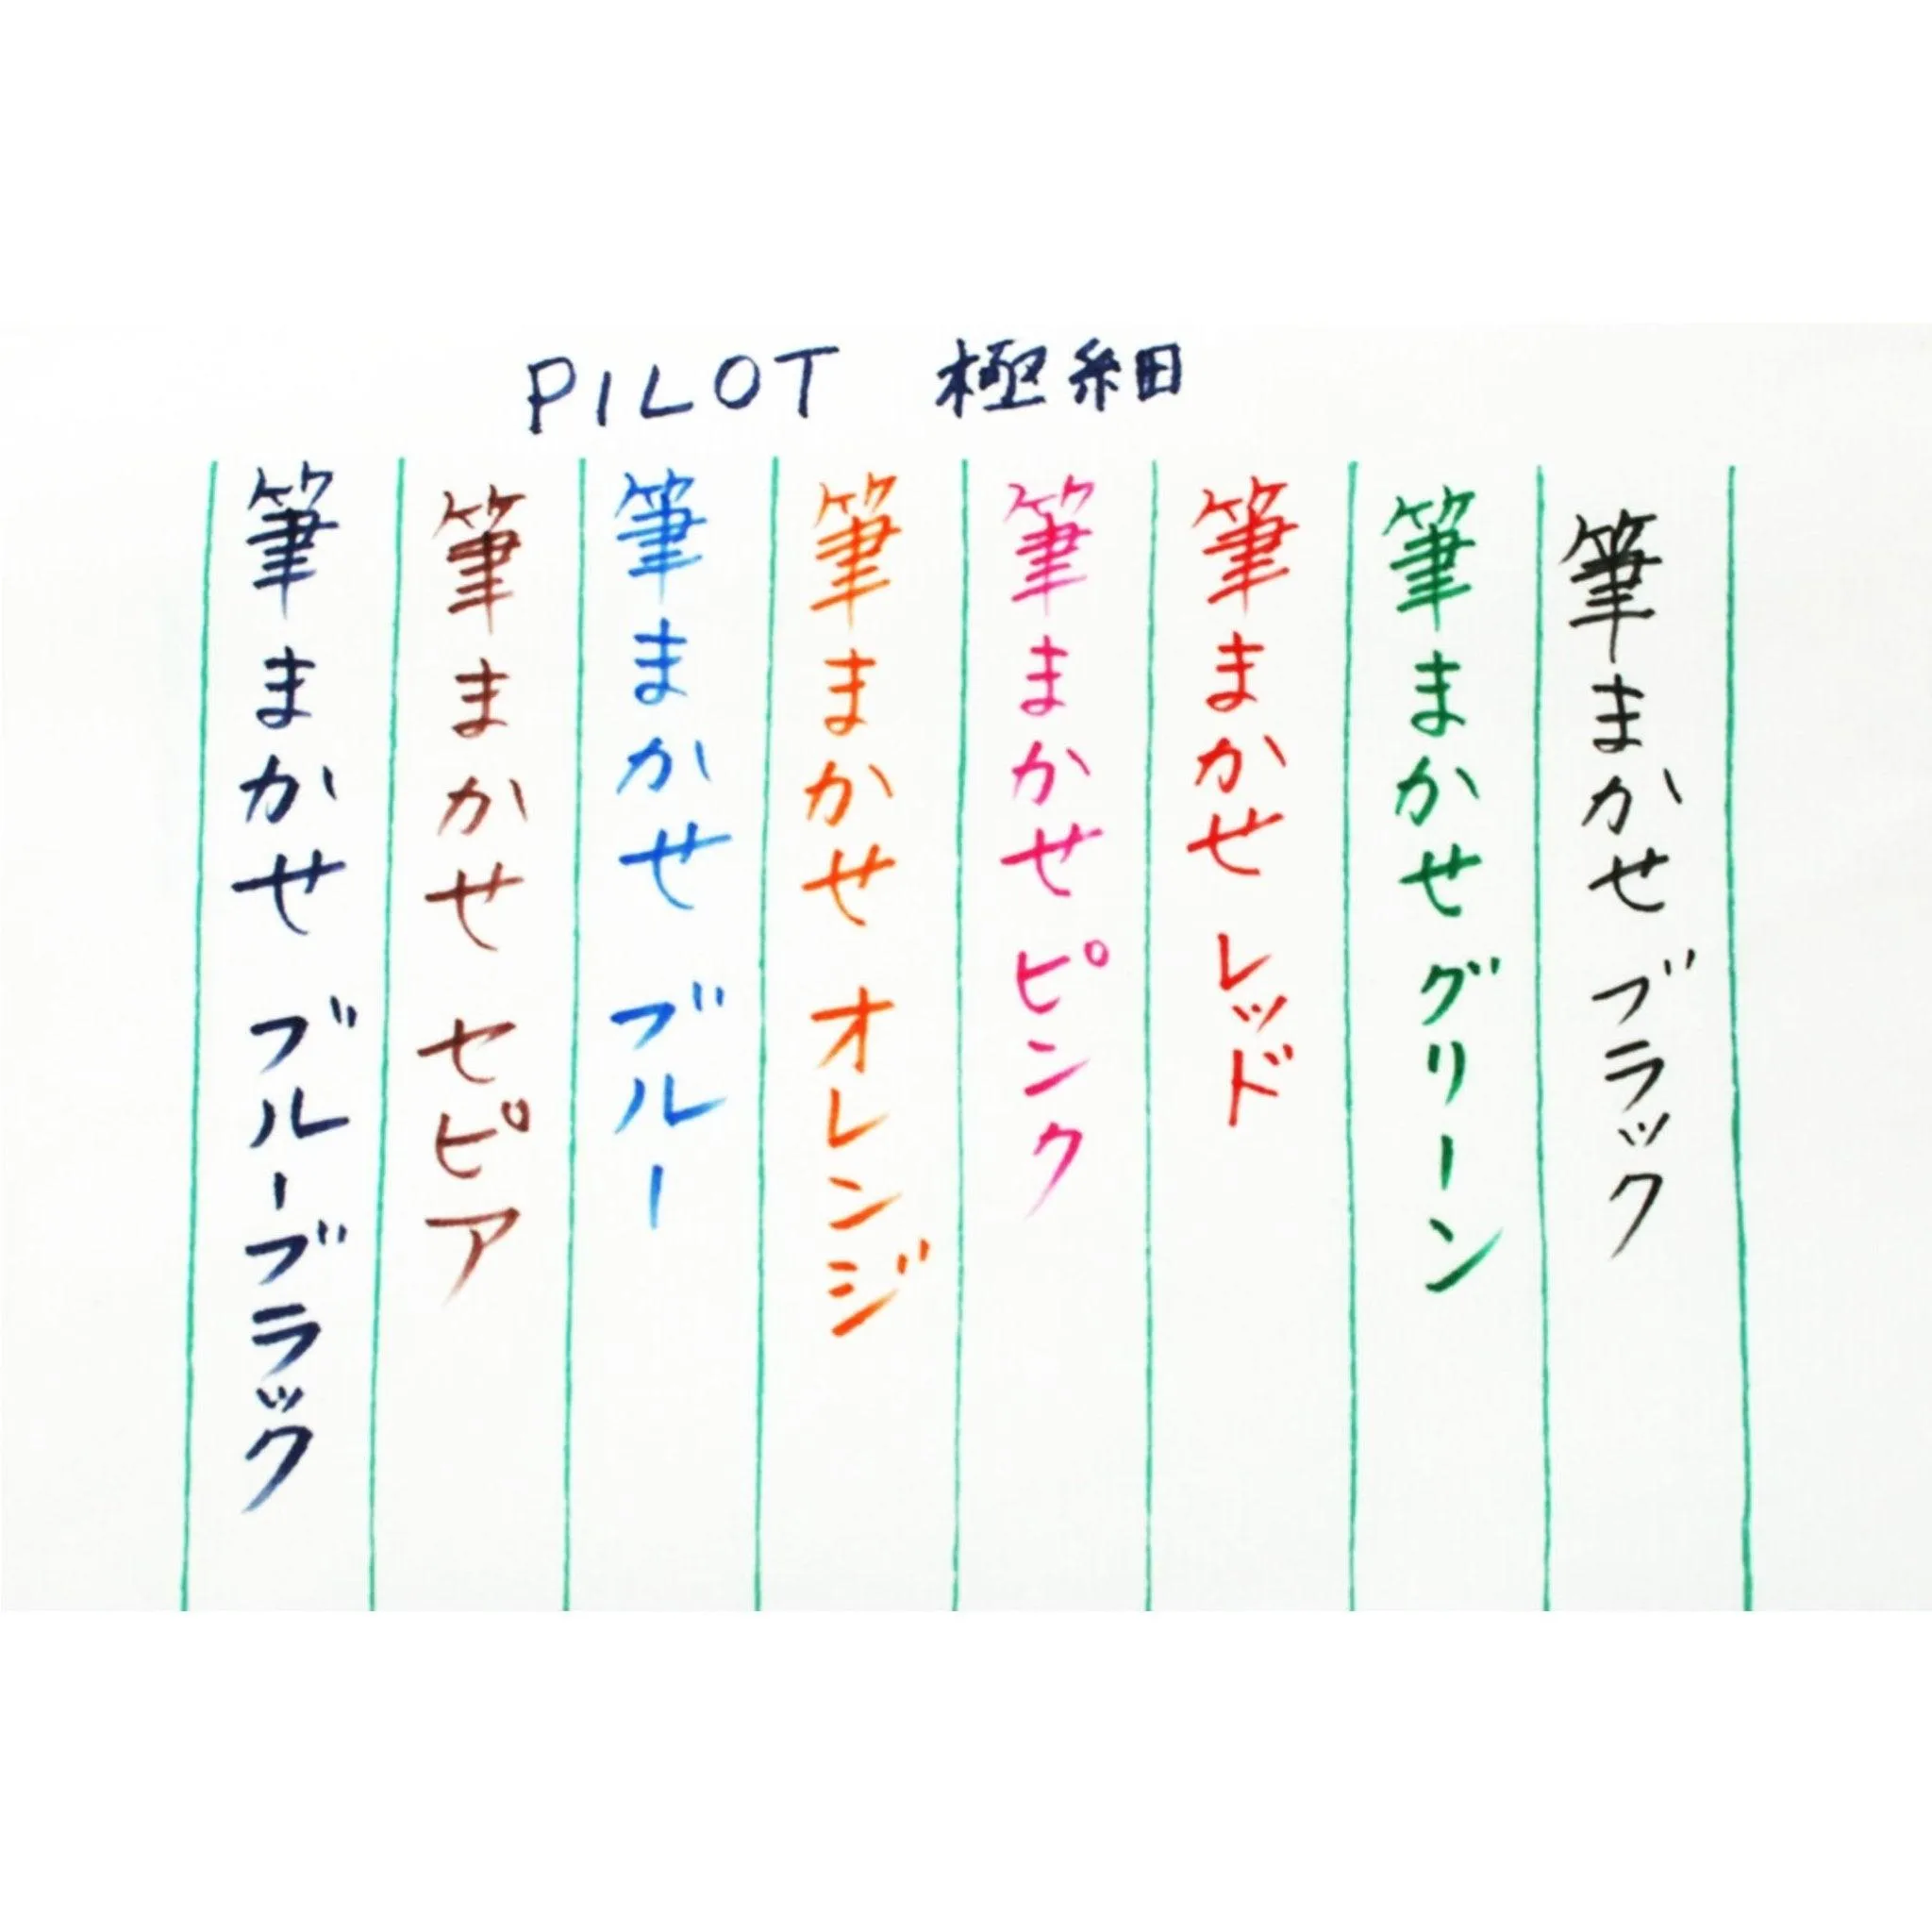 PILOT 極細
筆まかせ ブラック
筆まかせ グリーン
筆まかせ レッド
筆まかせ ピンク
筆まかせ オレンジ
筆まかせ ブルー
筆まかせ セピア
筆まかせ ブルーブラック